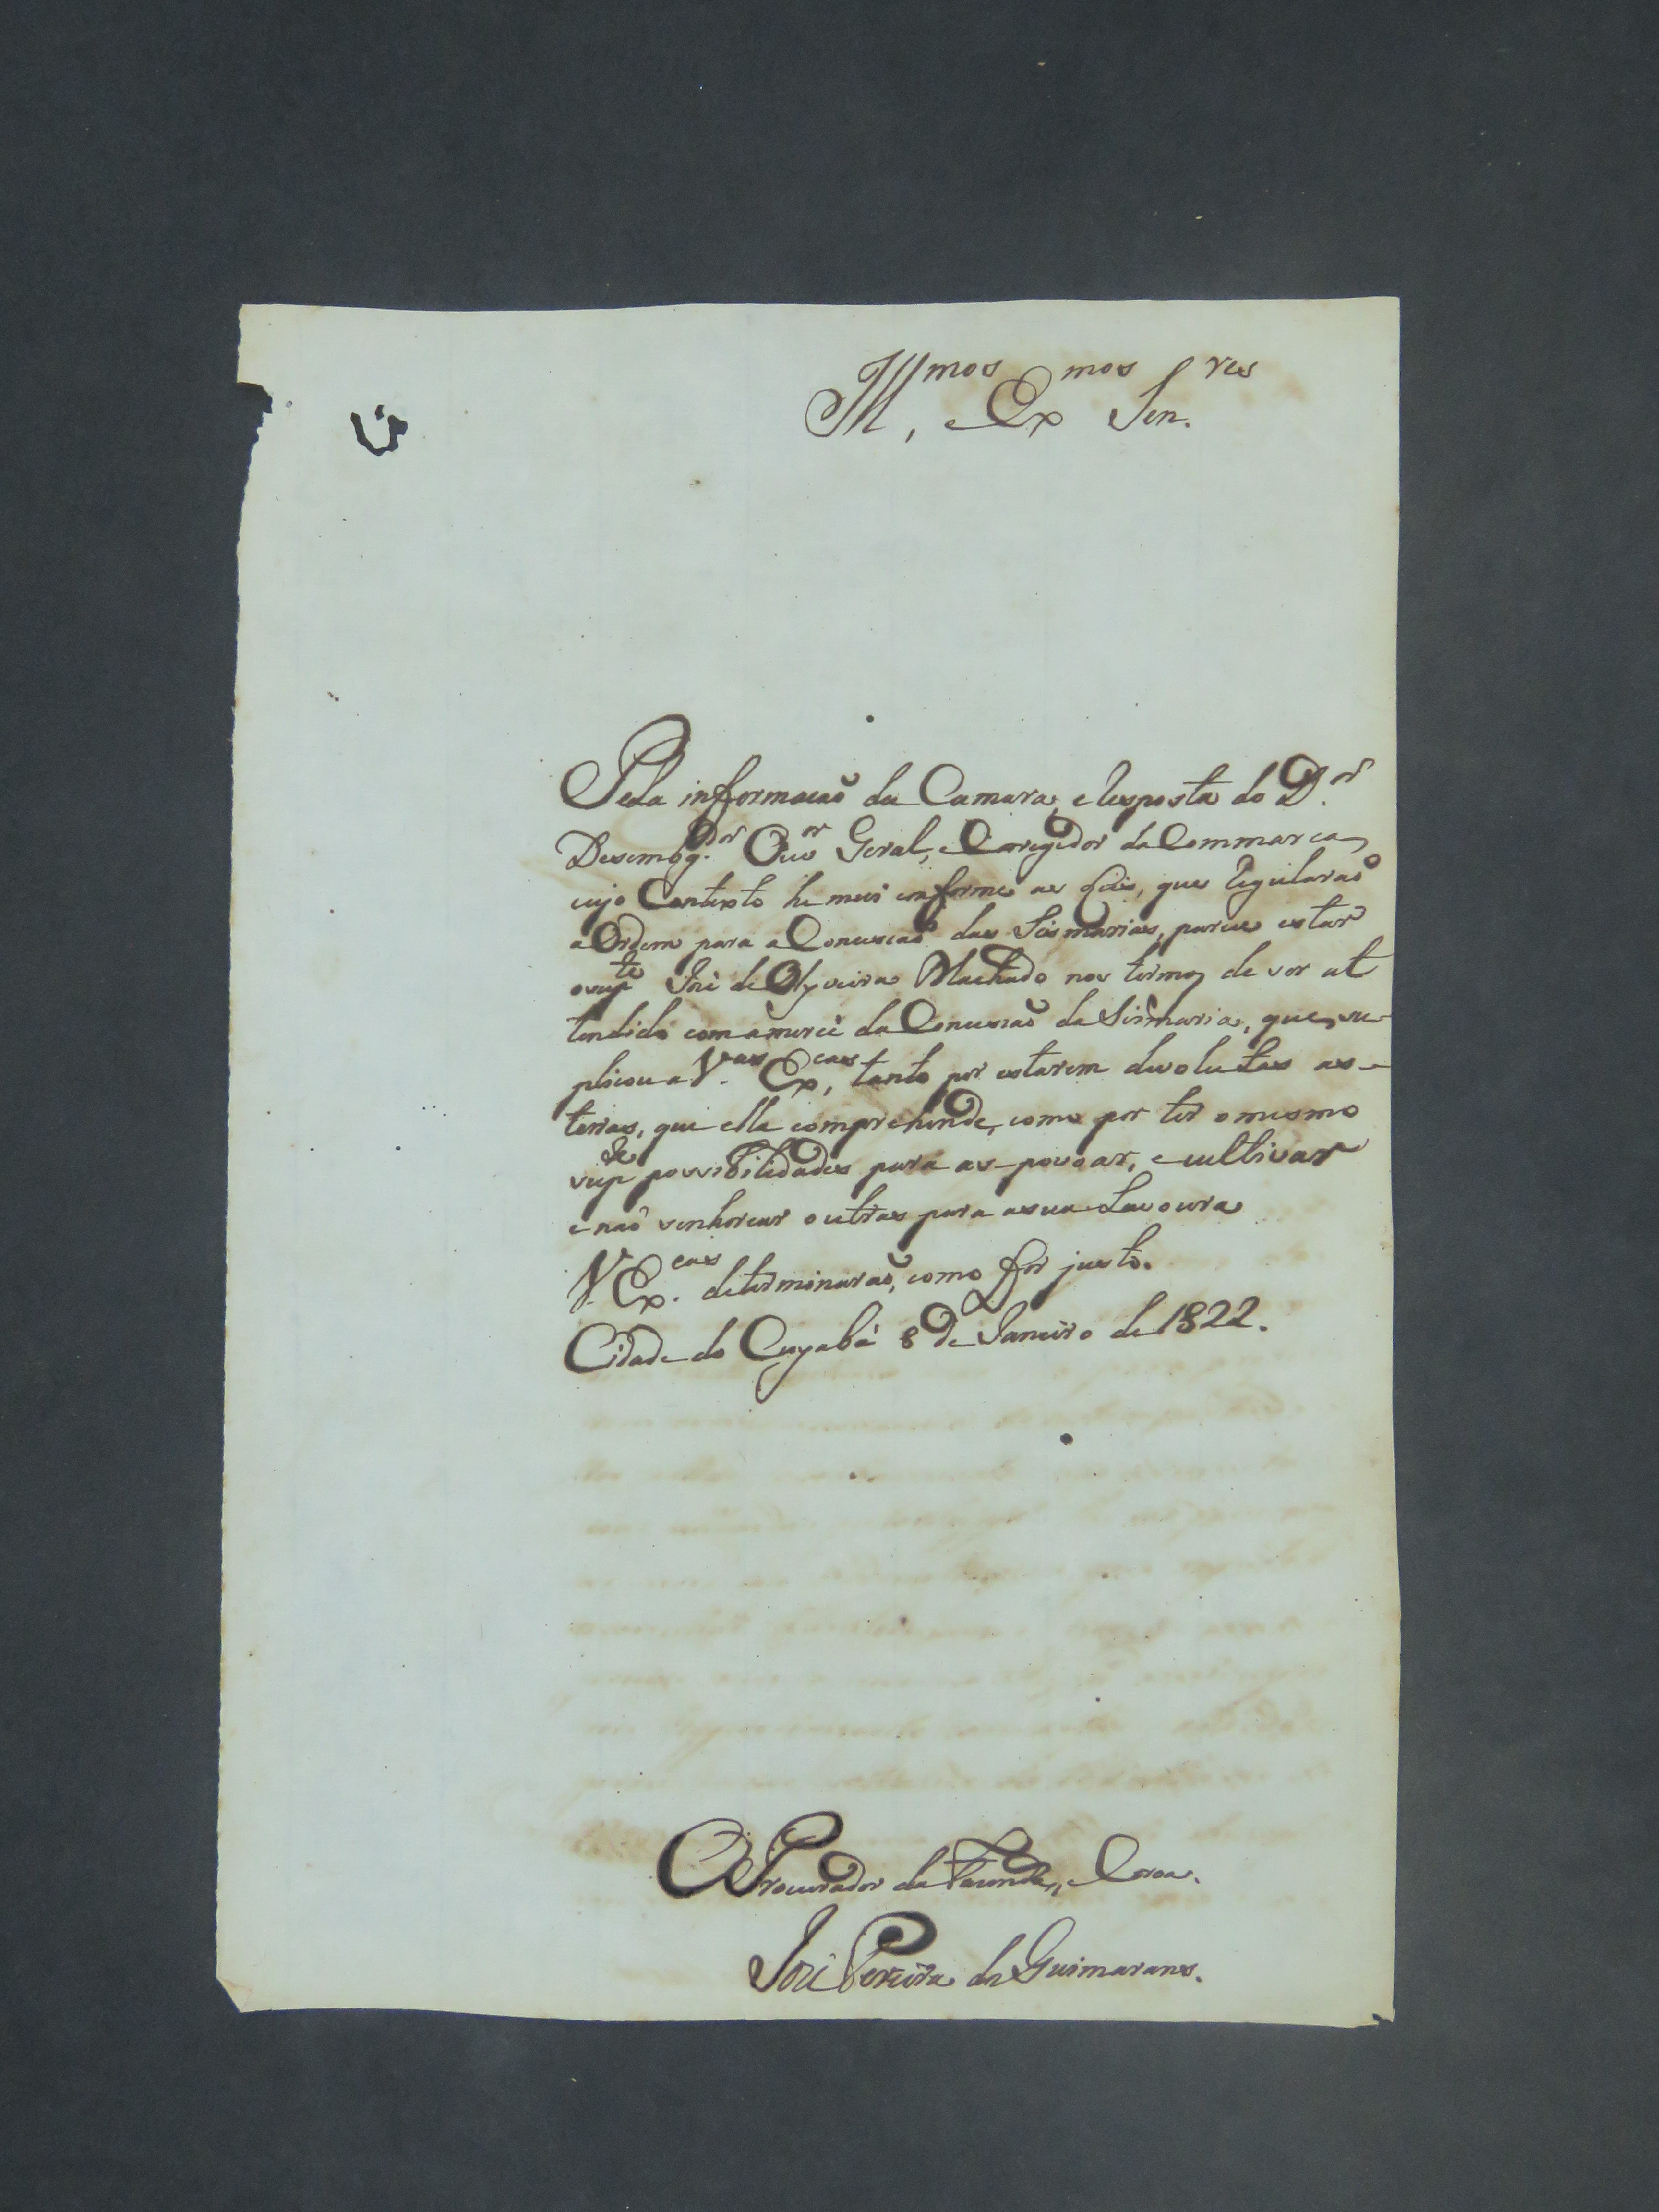 Ill.mos, e Ex.mos Sen.res
Pela informacaõ da Camara, e resposta do D.or
Desemb.g.dor Ouv.or Geral, e Coregedor da Commarca
cujo Contexto he mui conforme as Leis, que regularaõ
a Ordem para a Concecaõ das Sismarias, parece estar
o sup.te José de Olyveira Machado nos termos de ser at
tendido com a mercê da Concecaõ da Sismaria, que su-
plicou a V.as Ex.cas, tanto por estarem devolutas as-
terras, que ella comprehende, como por ter o mesmo
sup.te possibilidades para as-povoar, e cultivar
e naõ senhorear outras para a sua Lavoura
V. Ex.cas determinaraõ, como for justo.
Cidade do Cuyabá 8 de Janeiro de 1822.
O Procurador da Fazenda, e Coroa.
José Pereira da Guimaraens.